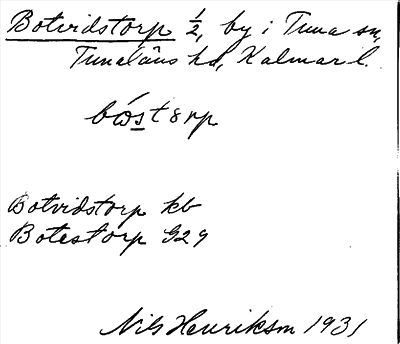 Botvidstorp 1/2, by i Tuna sn,
Tunaläns hd, Kalmar l.
Botvidstorp kb
Botestorp G29
Nils Henrikson 1931